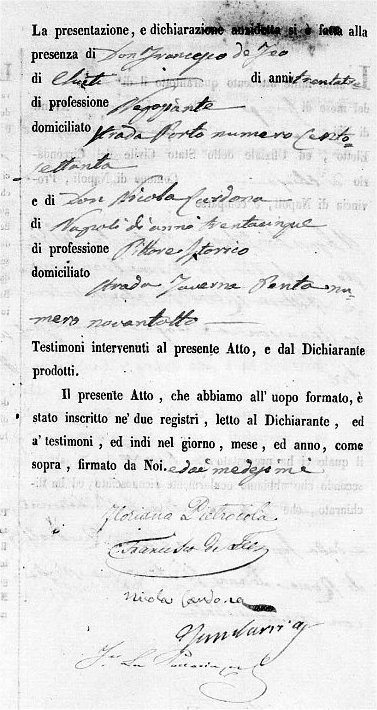 La presentazione, e dichiarazione anzidetta si è fatta alla
presenza di Don Francesco de Feo
di Chieti di anni trentatre
di professione Negoziante
domiciliato
strada Porto numero cento
settanta
e di Don Nicola Cardona
di Napoli di anni trentacinque
di professione Pittore Istorico
domiciliato
strada Taverna Penta nu-
mero novantotto
Testimoni intervenuti al presente Atto, e dal Dichiarante
prodotti.
Il presente Atto, che abbiamo all'uopo formato, è
stato inscritto ne' due registri, letto al Dichiarante, ed
a' testimoni, ed indi nel giorno, mese, ed anno, come
sopra, firmato da Noi. e dai medesimi
Floriano Pietrocola
Francesco de Feo
Nicola Cardona